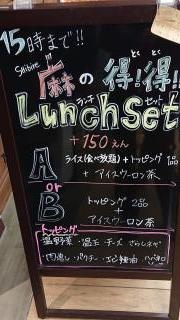 15時まで!!
Shibire
麻の得!得!
とく とく
Lunch Set
ランチ セット
+150えん
A ライス(食べ放題)+トッピング1品
+アイスウーロン茶
or
B トッピング2品
+
アイスウーロン茶
トッピング
温野菜・温玉・チーズ
肉増し・パクチー・